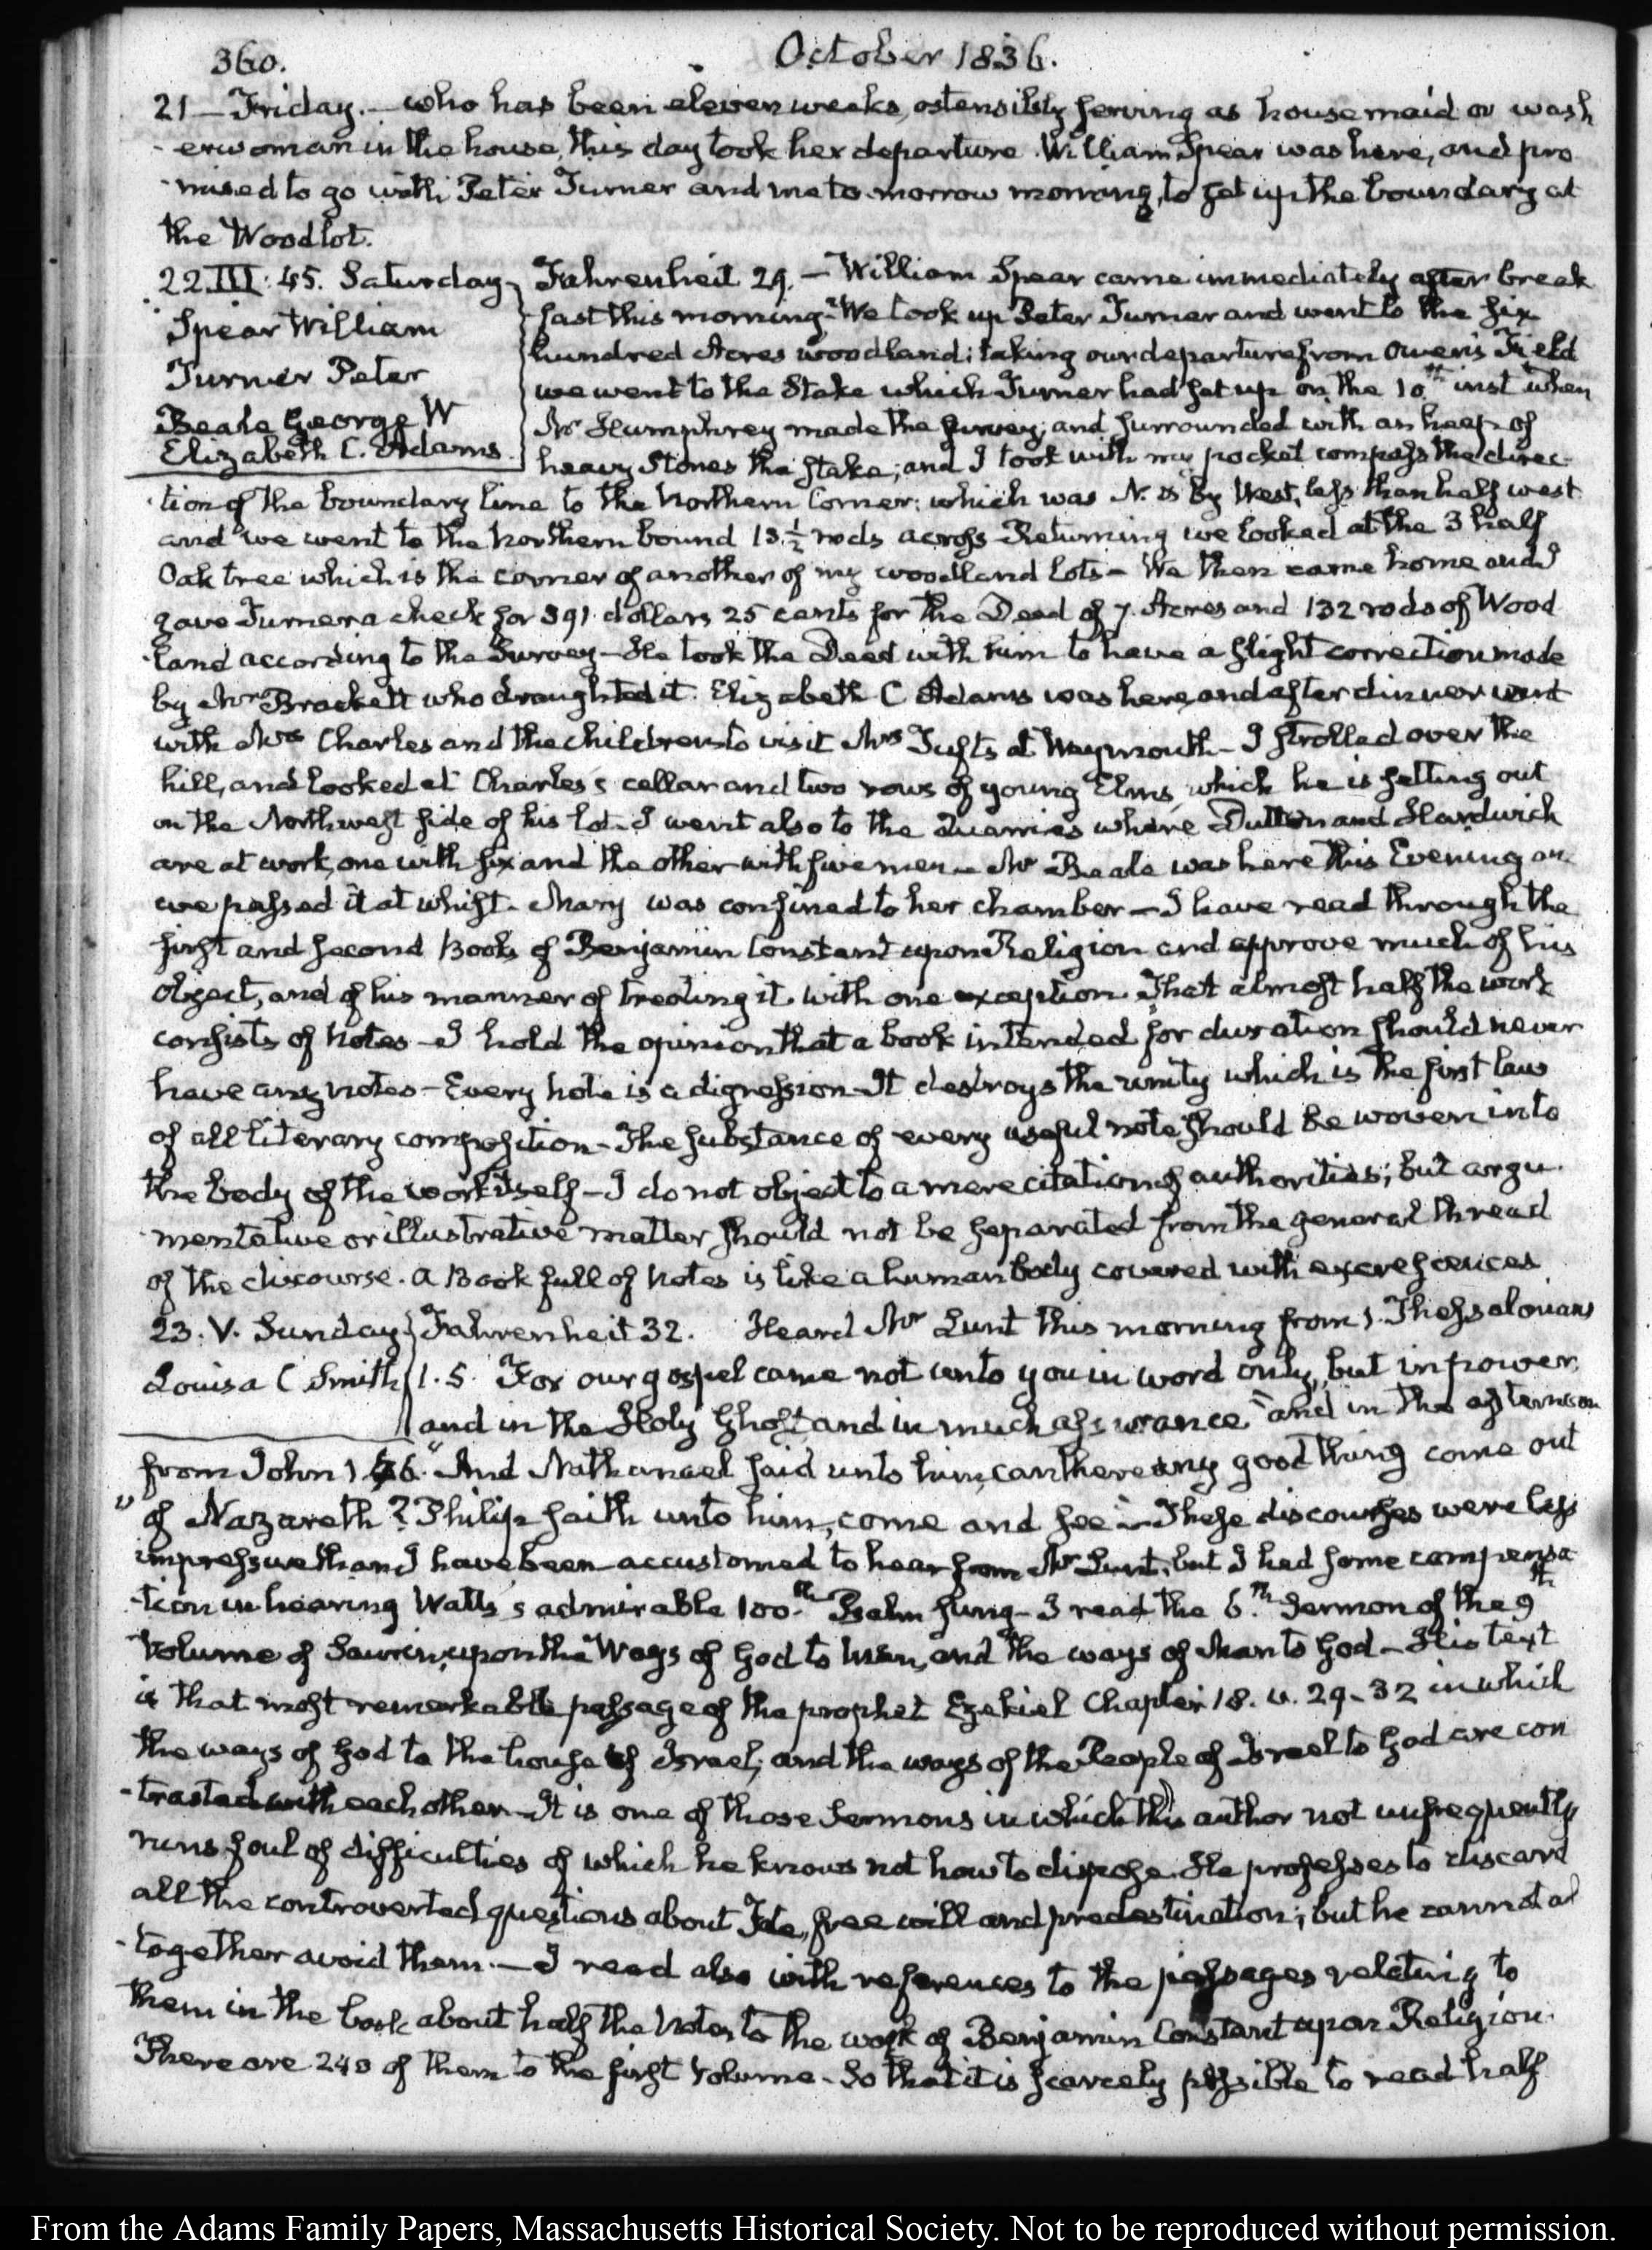 360.
October 1836.
21 — Friday. — who has been eleven weeks, ostensibly serving as house maid or wash
-erwoman in the house, this day took her departure. William Spear was here, and pro
-mised to go with Peter Turner and me to-morrow morning, to set up the boundary at
the Woodlot.
22. III: 45. Saturday
Spear William
Turner Peter
Beale George W
Elizabeth C. Adams.
Fahrenheit 29. — William Spear came immediately after break
fast this morning. We took up Peter Turner and went to the six
hundred Acres woodland; taking our departure from Owen's Field
we went to the Stake which Turner had set up on the 10th inst when
Mr Humphrey made the Survey; and surrounded with an heap of
heavy Stones the stake; and I took with my pocket compass the direc-
-tion of the boundary line to the Northern Corner: which was N. by West, less than half west
and we went to the Northern bound 13 ½ rods across — Returning we looked at the 3 half
Oak tree which is the corner of another of my woodland lots — We then came home and I
gave Turner a check for 391 dollars 25 cents for the Deed of 7. Acres and 132 rods of Wood
-land according to the Survey — He took the Deed with him to have a slight correction made
by Mr Brackett who draughted it. Elizabeth C Adams was here, and after dinner went
with Mrs Charles and the children to visit Mrs Tufts at Weymouth — I strolled over the
hill, and looked at Charles's cellar and two rows of young Elms, which he is setting out
on the Northwest side of his lot. I went also to the Quarries where Dutton and Hardwich
are at work, one with six and the other with five men — Mr Beale was here this Evening an
we passed it at whist. Mary was confined to her chamber — I have read through the
first and second Books of Benjamin Constant upon Religion and approve much of his
object, and of his manner of treating it. with one exception. That almost half the work
consists of Notes — I hold the opinion that a book intended for duration should never
have any notes — Every note is a digression — It destroys the unity which is the first law
of all literary composition — The substance of every useful note should be woven into
the body of the work itself — I do not object to a mere citation of authorities; but argu-
-mentative or illustrative matter should not be separated from the general thread
of the discourse. A Book full of Notes is like a human body covered with excrescences
23. V. Sunday
Louisa C Smith
Fahrenheit 32. Heard Mr Lunt this morning from 1. Thessalonians
1. 5. For our gospel came not unto you in word only, but in power,
and in the Holy Ghost and in much assurance" and in the afternoon
from John 1 46. "And Nathanael said unto him, can there any good thing come out
" of Nazareth? Philip saith unto him, come and see" — These discourses were less
impressive than I have been accustomed to hear from Mr Lunt, but I had some compensa
-tion in hearing Watts's admirable 100.th Psalm sung — I read the 6.th Sermon of the 9th
Volume of Saurin, upon the Ways of God to Man, and the ways of Man to God — His text
is that most remarkable passage of the prophet Ezekiel Chapter 18. v. 29-32 in which
the ways of God to the house of Israel; and the ways of the People of Israel to God are con
-trasted with each other — It is one of those Sermons in which this author not unfrequently
runs foul of difficulties of which he knows not how to dispose. He professes to discard
all the controverted questions about Fate, free will and predestination; but he cannot al
-together avoid them. — I read also with references to the passages relating to
them in the book about half the Notes to the work of Benjamin Constant upon Religion.
There are 240 of them to the first Volume — So that it is scarcely possible to read half
From the Adams Family Papers, Massachusetts Historical Society. Not to be reproduced without permission.